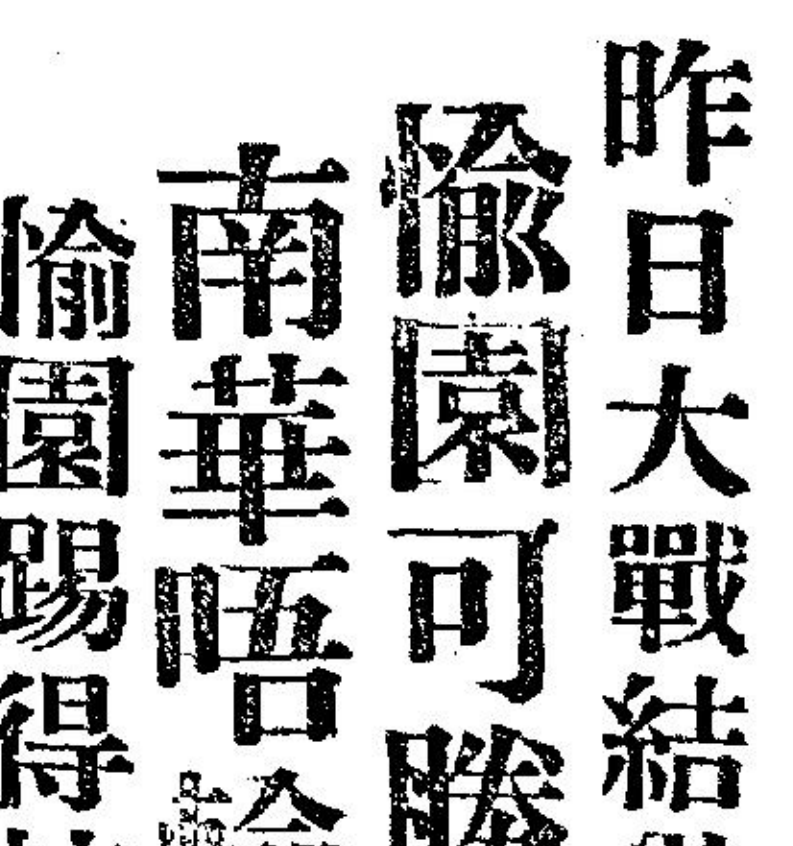 昨日大戰結
愉園可勝
南華唔輸
愉園踢得